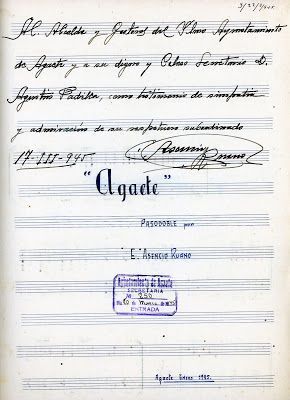 Al Alcalde y Gestores del Ylmo Ayuntamiento
de Agaete y a su digno y Celoso Secretario D.
Agustín Padilla, como testimonio de simpatía
y admiración de su respetuoso subordinado
17-III-945.
Asencio
Ruano
"Agaete"
PASODOBLE por
E. ASENCIO RUANO
Ayuntamiento de Agaete
SECRETARIA
ENTRADA
Agaete Enero 1945.